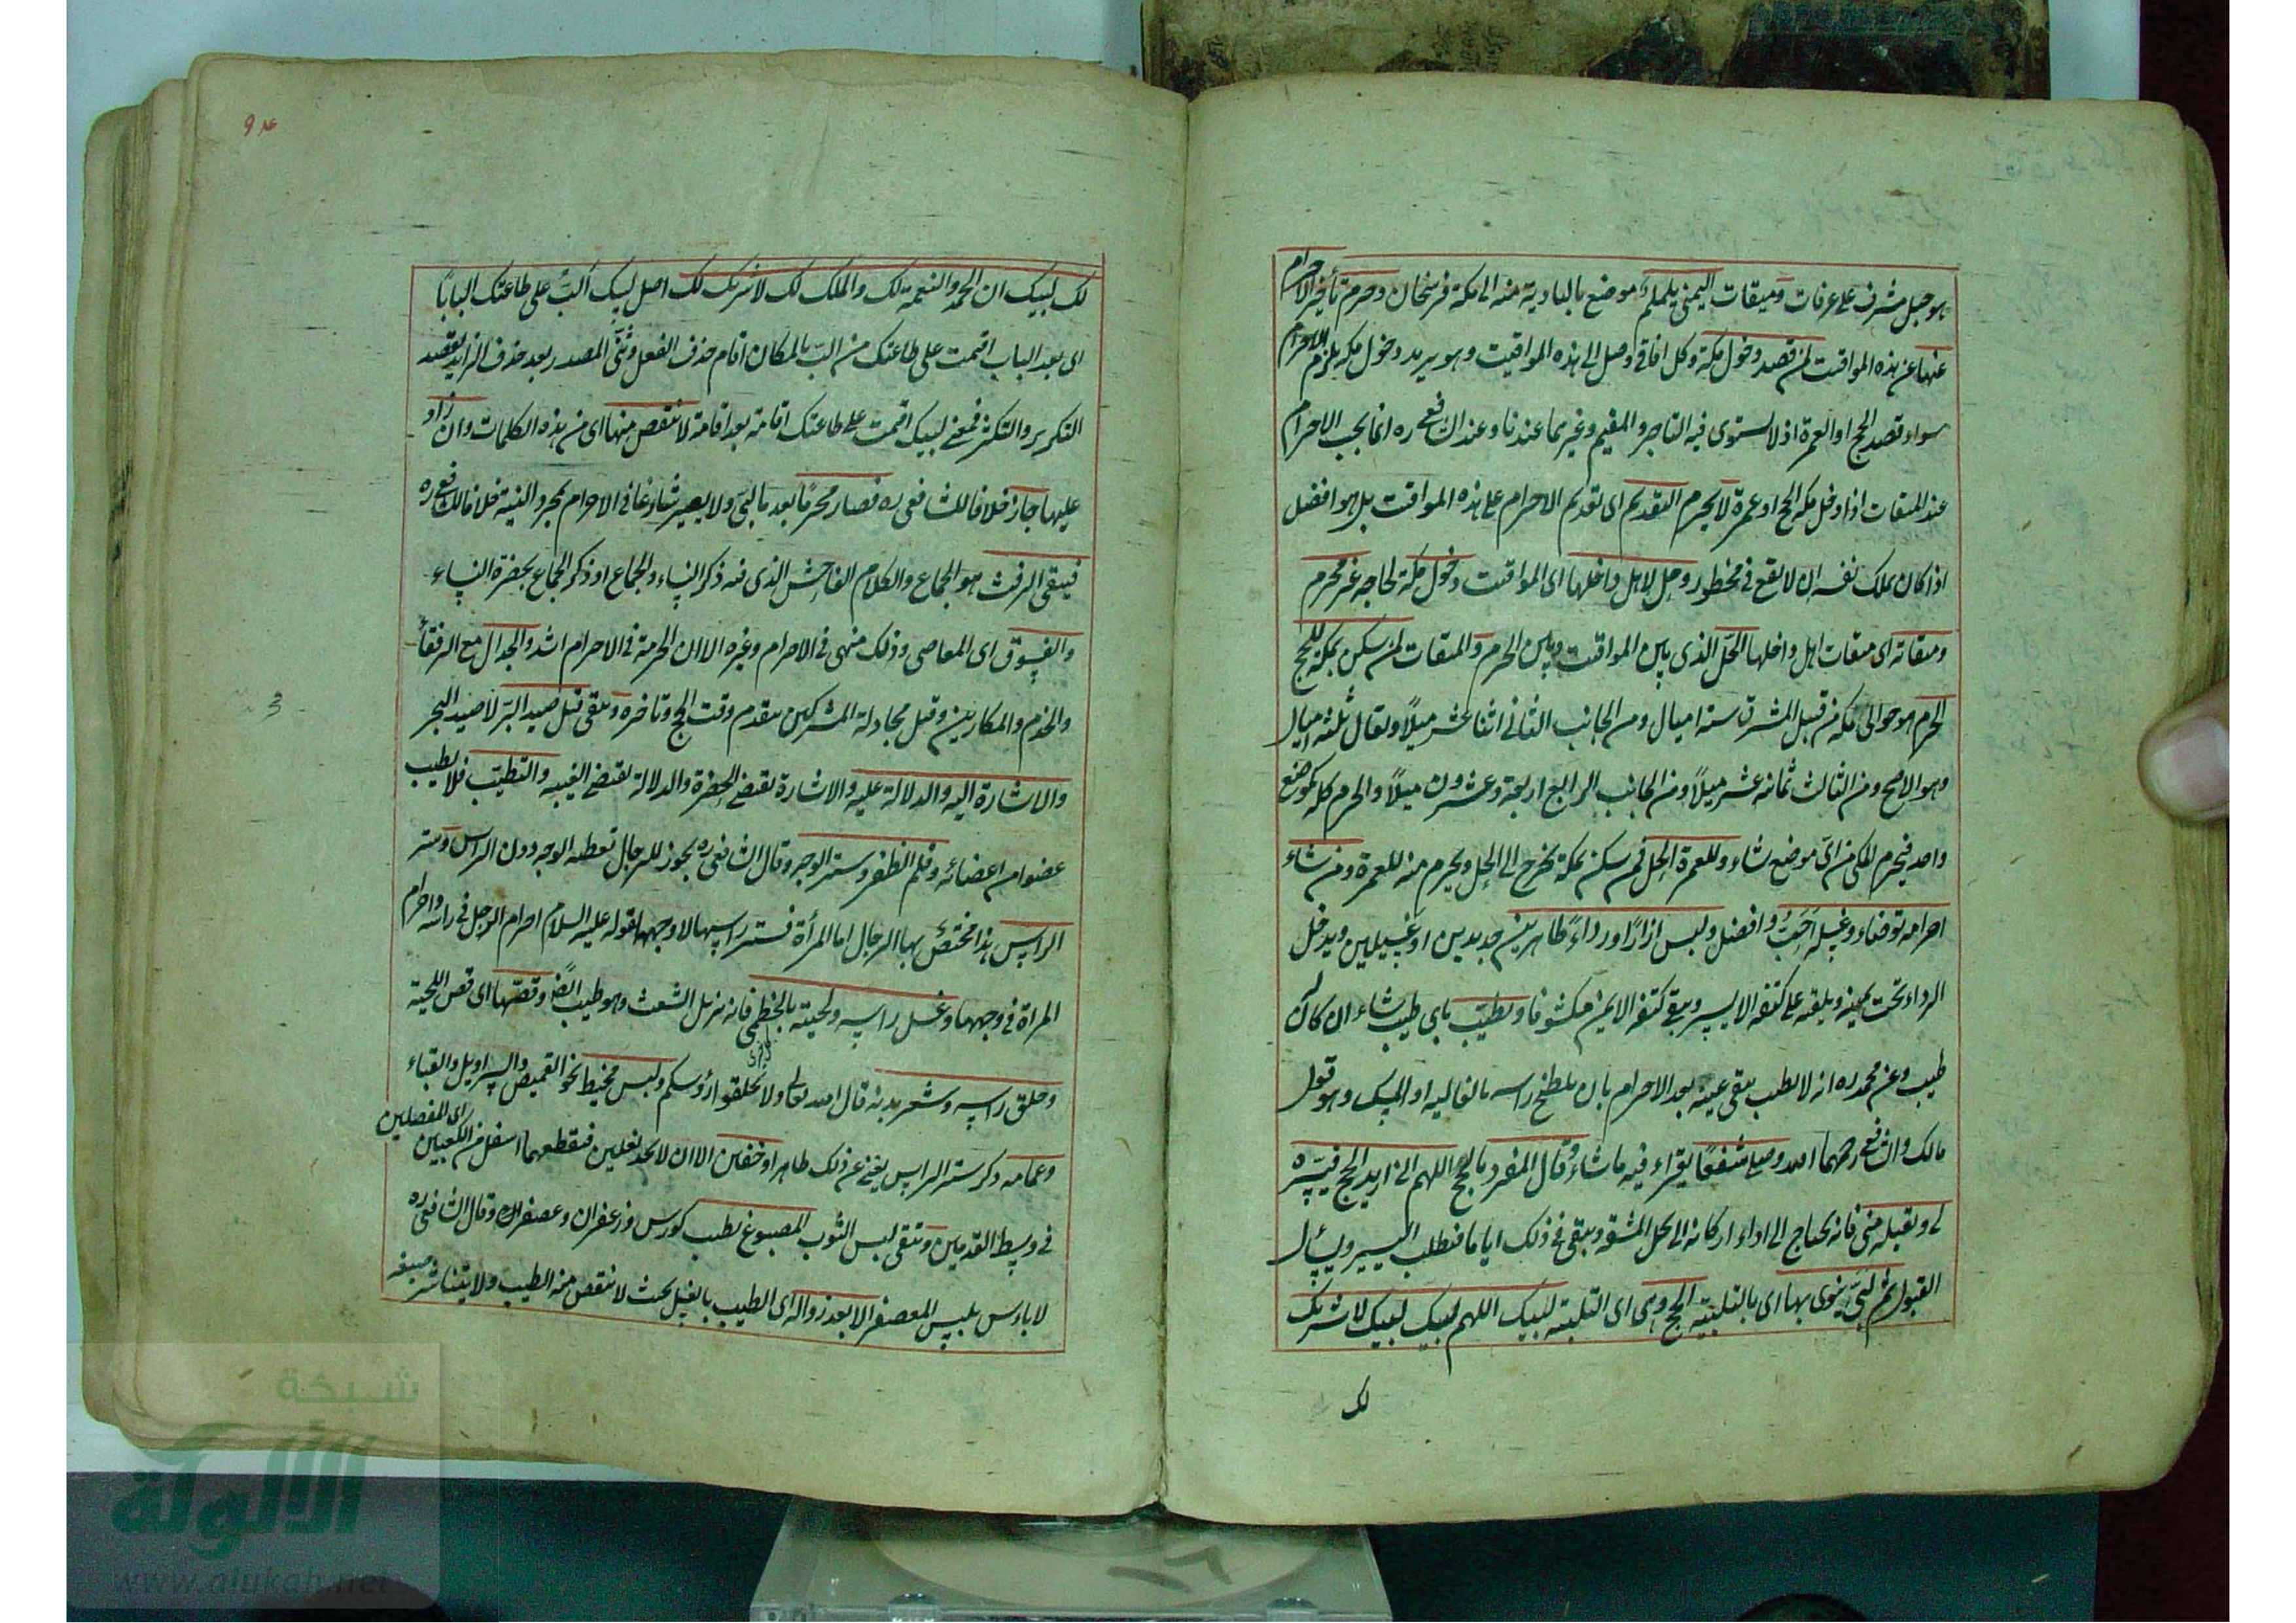 هو جبل مشرف على عرفات وميقات اليمنى يلملم موضع بالبادية منه الى مكة فرسخان وحرم تأخير الاحرام
عنها عن هذه المواقيت لمن قصد دخول مكة وكل افاقى وصل الى هذه المواقيت وهو يريد دخول مكة يلزم الاحرام
سواء قصد الحج او العمرة اذ لا يستوى فيه التاجر والمقيم وغيرهما عندنا وعند الشافعى ره انما يجب الاحرام
عند الميقات اذا دخل مكة لحج او عمرة لا يحرم التقديم اى تقديم الاحرام على هذه المواقيت بل هو افضل
اذا كان يملك نفسه ان لا يقع فى محظور وحل لاهل داخلها اى المواقيت دخول مكة لحاجة غير محرم
وميقاته اى ميقات اهل داخلها الحل الذى بين المواقيت وبين الحرم والميقات لمن سكن بمكة للحج
الحرم هو حوالى مكة من قبل المشرق ستة اميال ومن الجانب الثانى اثنا عشر ميلًا ويقال ثلثة اميال
وهو الاصح ومن الثالث ثمانية عشر ميلًا ومن الجانب الرابع اربعة وعشرون ميلًا والحرم كله كموضع
واحد فيحرم المكى من اىّ موضع شاء وللعمرة الحل فمن سكن بمكة يخرج الى الحل ويحرم منه للعمرة ومن شاء
احرامه توضاء وغسله احبّ وافضل ولبس ازارًا ورداءً طاهرين جديدين او غسيلين ويدخل
الرداء تحت يمينه ويلقيه على كتفه الايسر ويبقى كتفه الايمن مكشوفا وتطيّب باى طيب شاء ان كان له
طيب وعن محمد ره انه لا تطيب يبقى عينه بعد الاحرام بان يلطخ راسه بالغاليه او المسك وهو قول
مالك والشافعى رحمهما الله وصلى شفعًا يقراء فيه ما شاء وقال المفرد بالحج اللهم انى اريد الحج فيسّره
لى وتقبله منى فانه يحتاج الى اداء اركانه الى تحمل المشقه ويبقى فى ذلك اياما فيطلب اليسير ويسأل
القبول ثم لبّى ينوى بها اى بالتلبية الحج وهى اى التلبية لبيك اللهم لبيك لبيك لا شريك
لك
لك لبيك ان الحمد والنعمة لك والملك لك لا شريك لك اصل لبيك البّ على طاعتك البابا
اى بعد الباب اقمت على طاعتك من البّ بالمكان اقام حذف الفعل وثنّى المصدر بعد حذف الزايد بقصد
التكرير والتكثر فمعنى لبيك اقمت على طاعتك اقامة بعد اقامة لا ينقص منها اى من هذه الكلمات وان زاد
عليها جاز خلافا للشافعى ره فصار محرمًا بعد ما لبّى ولا يصير شارعًا فى الاحرام بمجرد النية خلافا للشافعى ره
فيتقى الرفث هو الجماع والكلام الفاحش الذى فيه ذكر النساء والجماع او ذكر الجماع بحضرة النساء
والفسوق اى المعاصى وذلك منهى فى الاحرام وغيره الا ان الحرمة فى الاحرام اشد والجدال مع الرفقاء
والخدم والمكارين وقيل مجادلة المشركين بتقدم وقت الحج وتاخره ويتقى قتل صيد البرّ لا صيد البحر
والاشارة اليه والدلالة عليه والاشارة تقتضى الحضرة والدلالة تقتضى الغيبه والتطيّب فلا يطيب
عضوا من اعضائه وقلم الظفر وستر الوجه وقال الشافعى ره يجوز للرجال تغطية الوجه دون الراس وستر
الراس هذا مختصّ بها الرجال اما المرأة فستر راسها لا وجهها لقوله عليه السلام احرام الرجل فى راسه واحرام
المراة فى وجهها وغسل راسه ولحيته بالخطمى فانه يزيل الشعث وهو طيب ايضًا وقصّها اى قص اللحية
وحلق راسه وشعر بدنه قال الله تعالى ولا تحلقوا رؤسكم ولبس مخيط نحو القميص والسراويل والقباء
وعمامه ذكر ستر الراس يغنى عن ذلك ظاهرا وخفين الا ان لا يجد نعلين فيقطعهما اسفل من الكعبين اى المفصلين
فى وسط القدمين ويتقى لبس الثوب المصبوغ بطيب كورس وزعفران وعصفر وقال الشافعى ره
لا باءس بلبس المعصفر الا بعد زواله اى الطيب بالغسل بحيث لا ينقص منه الطيب ولا يتناثر صبغه